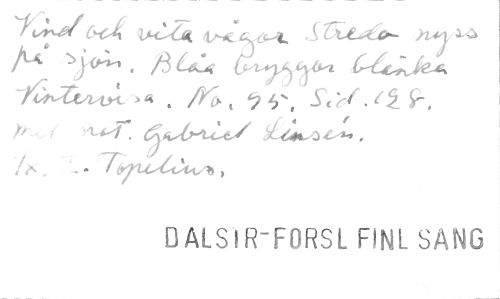 Vind och vita vågor Stredo nyss
på sjön. Blåa bryggor blänka
Vintervisa. No. 95. Sid. 128.
med not. Gabriel Linsén.
Z. Topelius.
DALSTR-FORSL FINL SANG